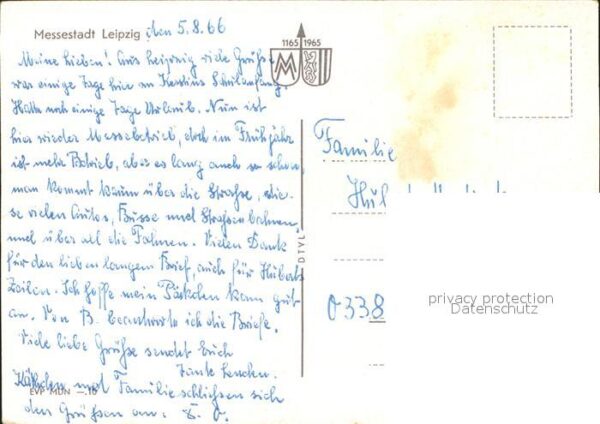 Messestadt Leipzig den 5.8.66
1165 1965
Meine Lieben! Aus Leipzig viele Grüße,
war einige Tage hier an Schulanfang
Hatte noch einige Tage Urlaub. Nun ist
hier wieder Messebetrieb, doch im Frühjahr
ist mehr Betrieb, aber es langt auch so schon,
man kommt kaum über die Straße, die-
se vielen Autos, Busse und Straßenbahnen,
und überall die Fahnen. Vielen Dank
für den lieben langen Brief, auch für Huberts
Zeilen. Ich hoffe mein Päckchen kam gut
an. Von B. beantworte ich die Briefe.
Viele liebe Grüße sendet Euch
Tante Lenchen.
Käthchen und Familie schließen sich
den Grüßen an.
EVP MDN —.10
DTVL
Familie
0338
privacy protection
Datenschutz